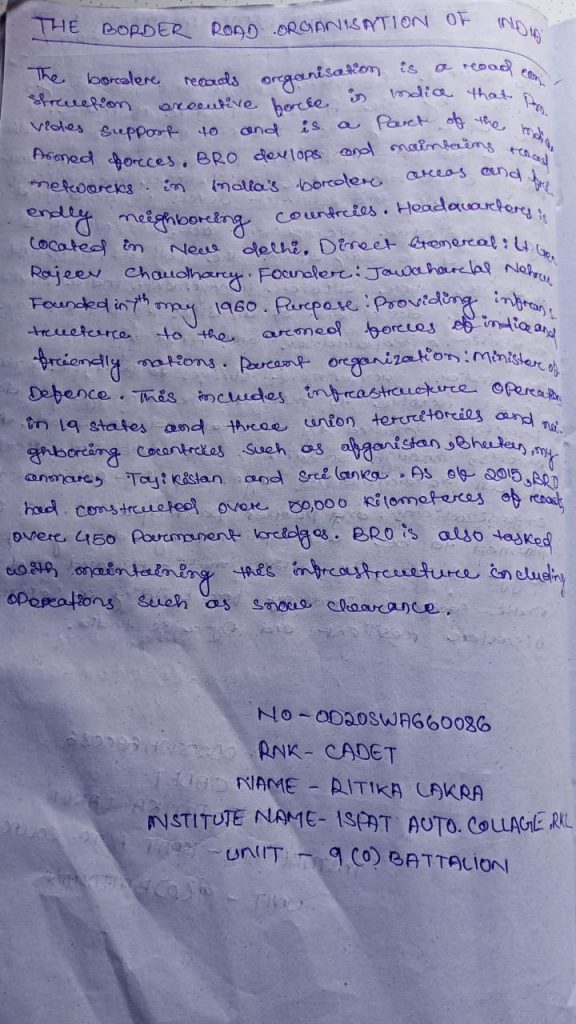 THE BORDER ROAD ORGANISATION OF INDIA
The borderc roads organisation is a road con
struction executive force in India that Pro
vides support to and is a Part of the India
Armed forces. BRO devlops and maintains road
networcks in India's borderc areas and fri
endly neighborcing countrcies. Headquarters is
located in New delhi. Direct General: Lt. Gen
Rajeev Chaudhary. Founderc: Jawaharlal Nehru
Founded in 7th may 1960. Purpose: Providing infras
tructurce to the armed forces of india and
friendly nations. Parcent organization: Minister of
Defence. This includes infrcastructurce operation
in 19 states and three union territorcies and nei-
ghborcing countrcies such as afganistan, Bhutan, my
anmarc, Tajikistan and srilanka. As of 2015, BRO
had constructed over 50,000 kilometeres of roads,
overc 450 Parmanent bridges. BRO is also tasked
with maintaining this infrcastructurce including
operations such as snow clearance.
NO - OD20SWA660086
RNK - CADET
NAME - RITIKA LAKRA
INSTITUTE NAME - ISPAT AUTO. COLLAGE, RKL
UNIT - 9 (O) BATTALION